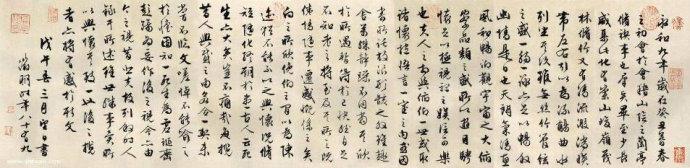 永和九年歲在癸丑暮春
之初會于會稽山陰之蘭亭
脩禊事也羣賢畢至少長
咸集此地有崇山峻嶺茂
林脩竹又有清流激湍映
帶左右引以為流觴曲水
列坐其次雖無絲竹管絃
之盛一觴一詠亦足以暢敘
幽情是日也天朗氣清惠
風和暢仰觀宇宙之大俯
察品類之盛所以遊目騁
懷足以極視聽之娛信可樂
也夫人之相與俯仰一世或取
諸懷抱悟言一室之內或因
寄所託放浪形骸之外雖趣
舍萬殊靜躁不同當其欣
於所遇暫得於己怏然自足
不知老之將至及其所之既
倦情隨事遷感慨係之矣
向之所欣俛仰之間已為陳
迹猶不能不以之興懷況脩
短隨化終期於盡古人云死
生亦大矣豈不痛哉每攬
昔人興感之由若合一契未
嘗不臨文嗟悼不能喻之
於懷固知一死生為虛誕齊
彭殤為妄作後之視今亦由
今之視昔悲夫故列敘時人
錄其所述雖世殊事異所
以興懷其致一也後之攬
者亦將有感於斯文
戊午三月望書
徵明時年八十有九